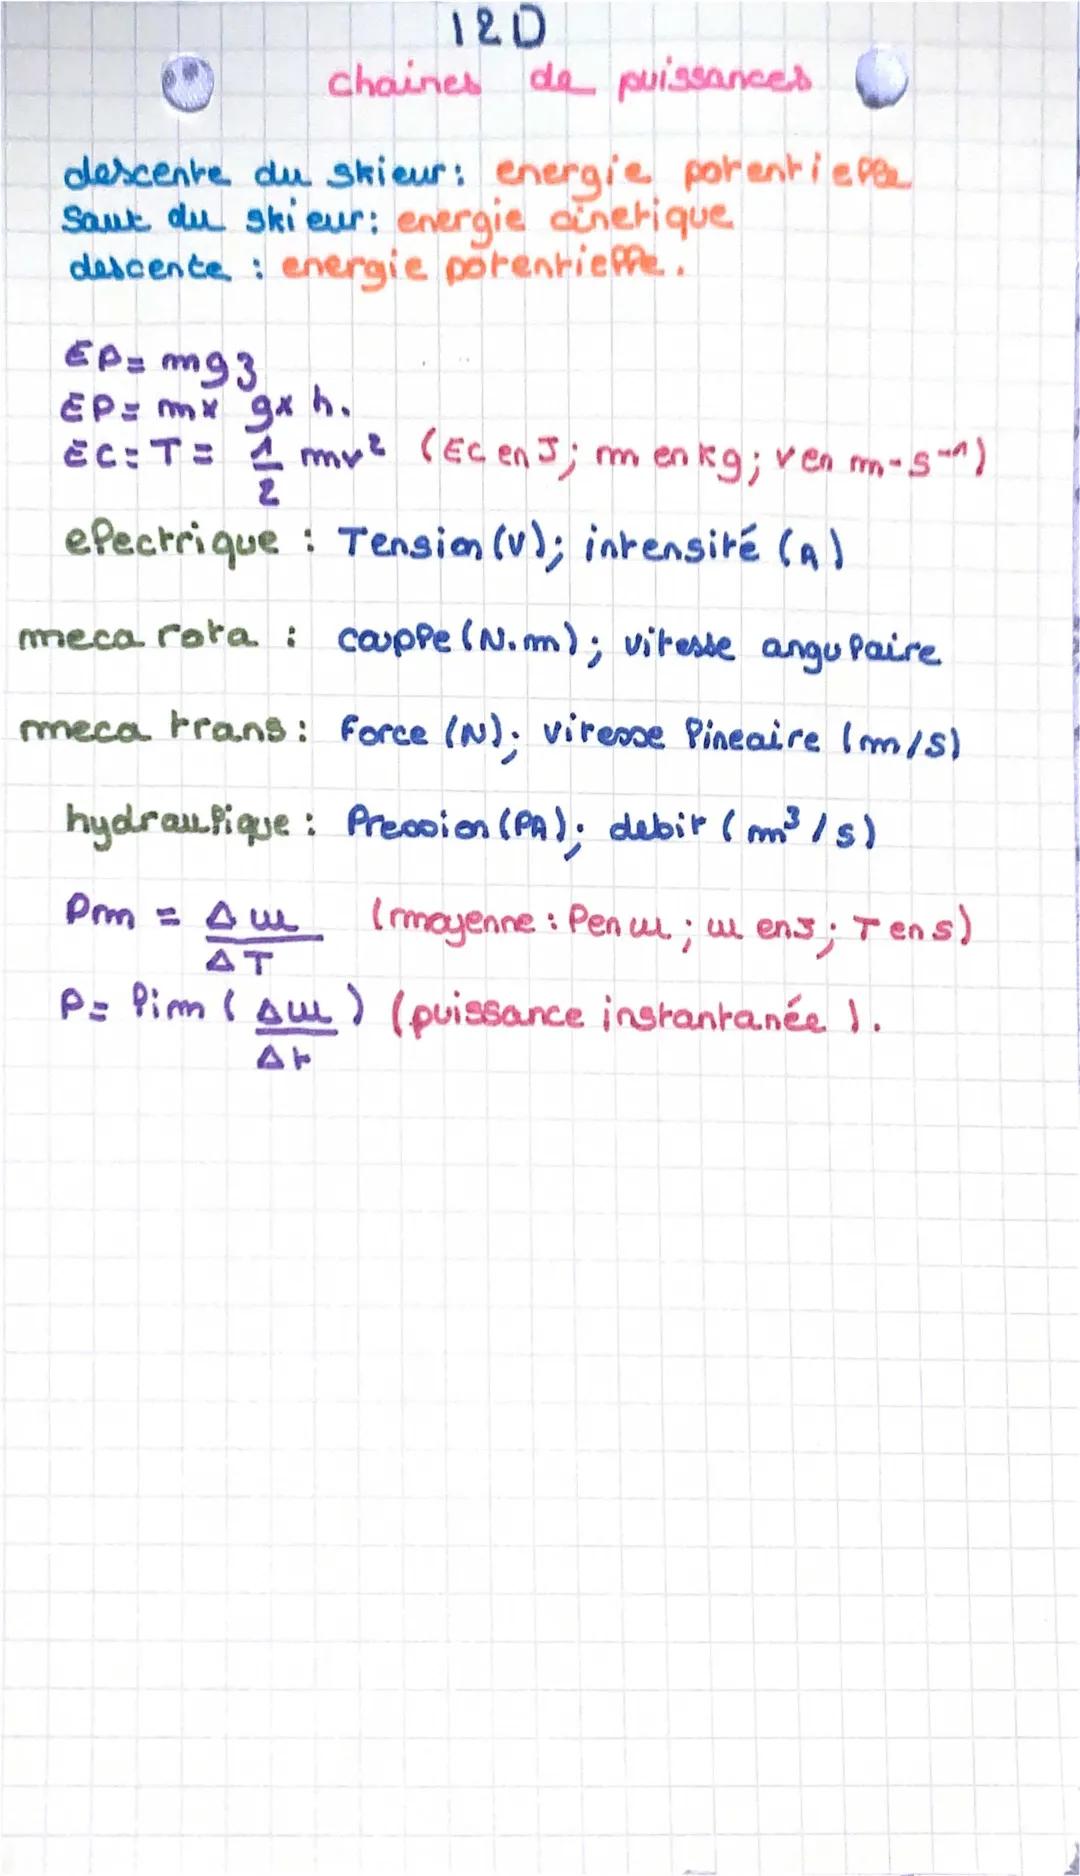 I2D
chaines de puissances
descente du skieur: energie potentielle
Saut du skieur: energie cinetique
descente : energie potentielle.
EP = mgz
EP = m x g x h.
EC = T = 1/2 mv² (EC en J; m en kg; v en m-s⁻¹)
electrique : Tension (V); intensité (A)
meca rota : couple (N.m); vitesse angulaire
meca trans : Force (N); vitesse lineaire (m/s)
hydraulique : Pression (PA); debit (m³/s)
Pm = Δw/ΔT (moyenne : P en w; w en J; T en s)
P = lim (Δw/Δt) (puissance instantanée).